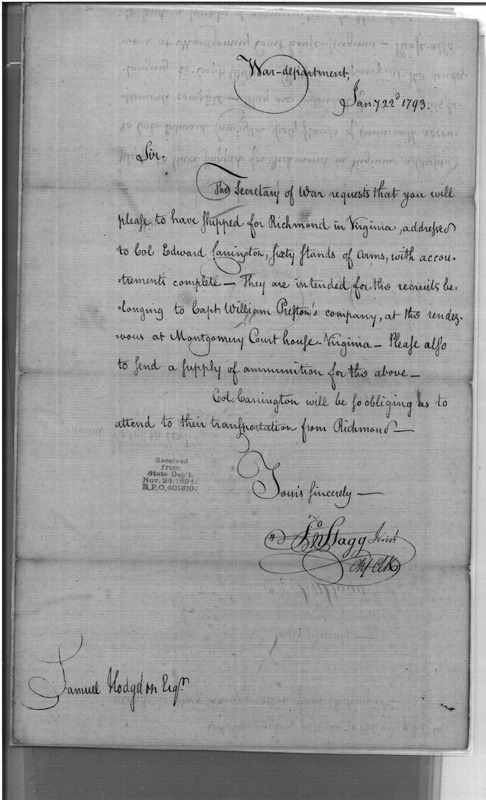 War-department,
Jany 22d 1793.
Sir.
The Secretary of War requests that you will
please to have shipped for Richmond in Virginia, addressed
to Col Edward Carrington, sixty stands of arms, with accou-
-trements complete — They are intended for the recruits be-
-longing to Capt William Preston's company, at the rendez-
-vous at Montgomery Court house - Virginia — Please also
to send a supply of ammunition for the above —
Col. Carrington will be so obliging as to
attend to their transportation from Richmond —
Received
from
State Dep't.
Nov. 24, 1894.
R.P.O. 401810.
Yours sincerely —
Jno Stagg Junr
Chf Clk
Samuel Hodgdon Esqr.